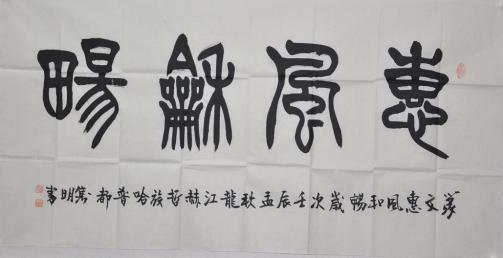 惠風龢畼
篆文惠風和暢歲次壬辰孟秋龍江赫哲族哈普都隽明書